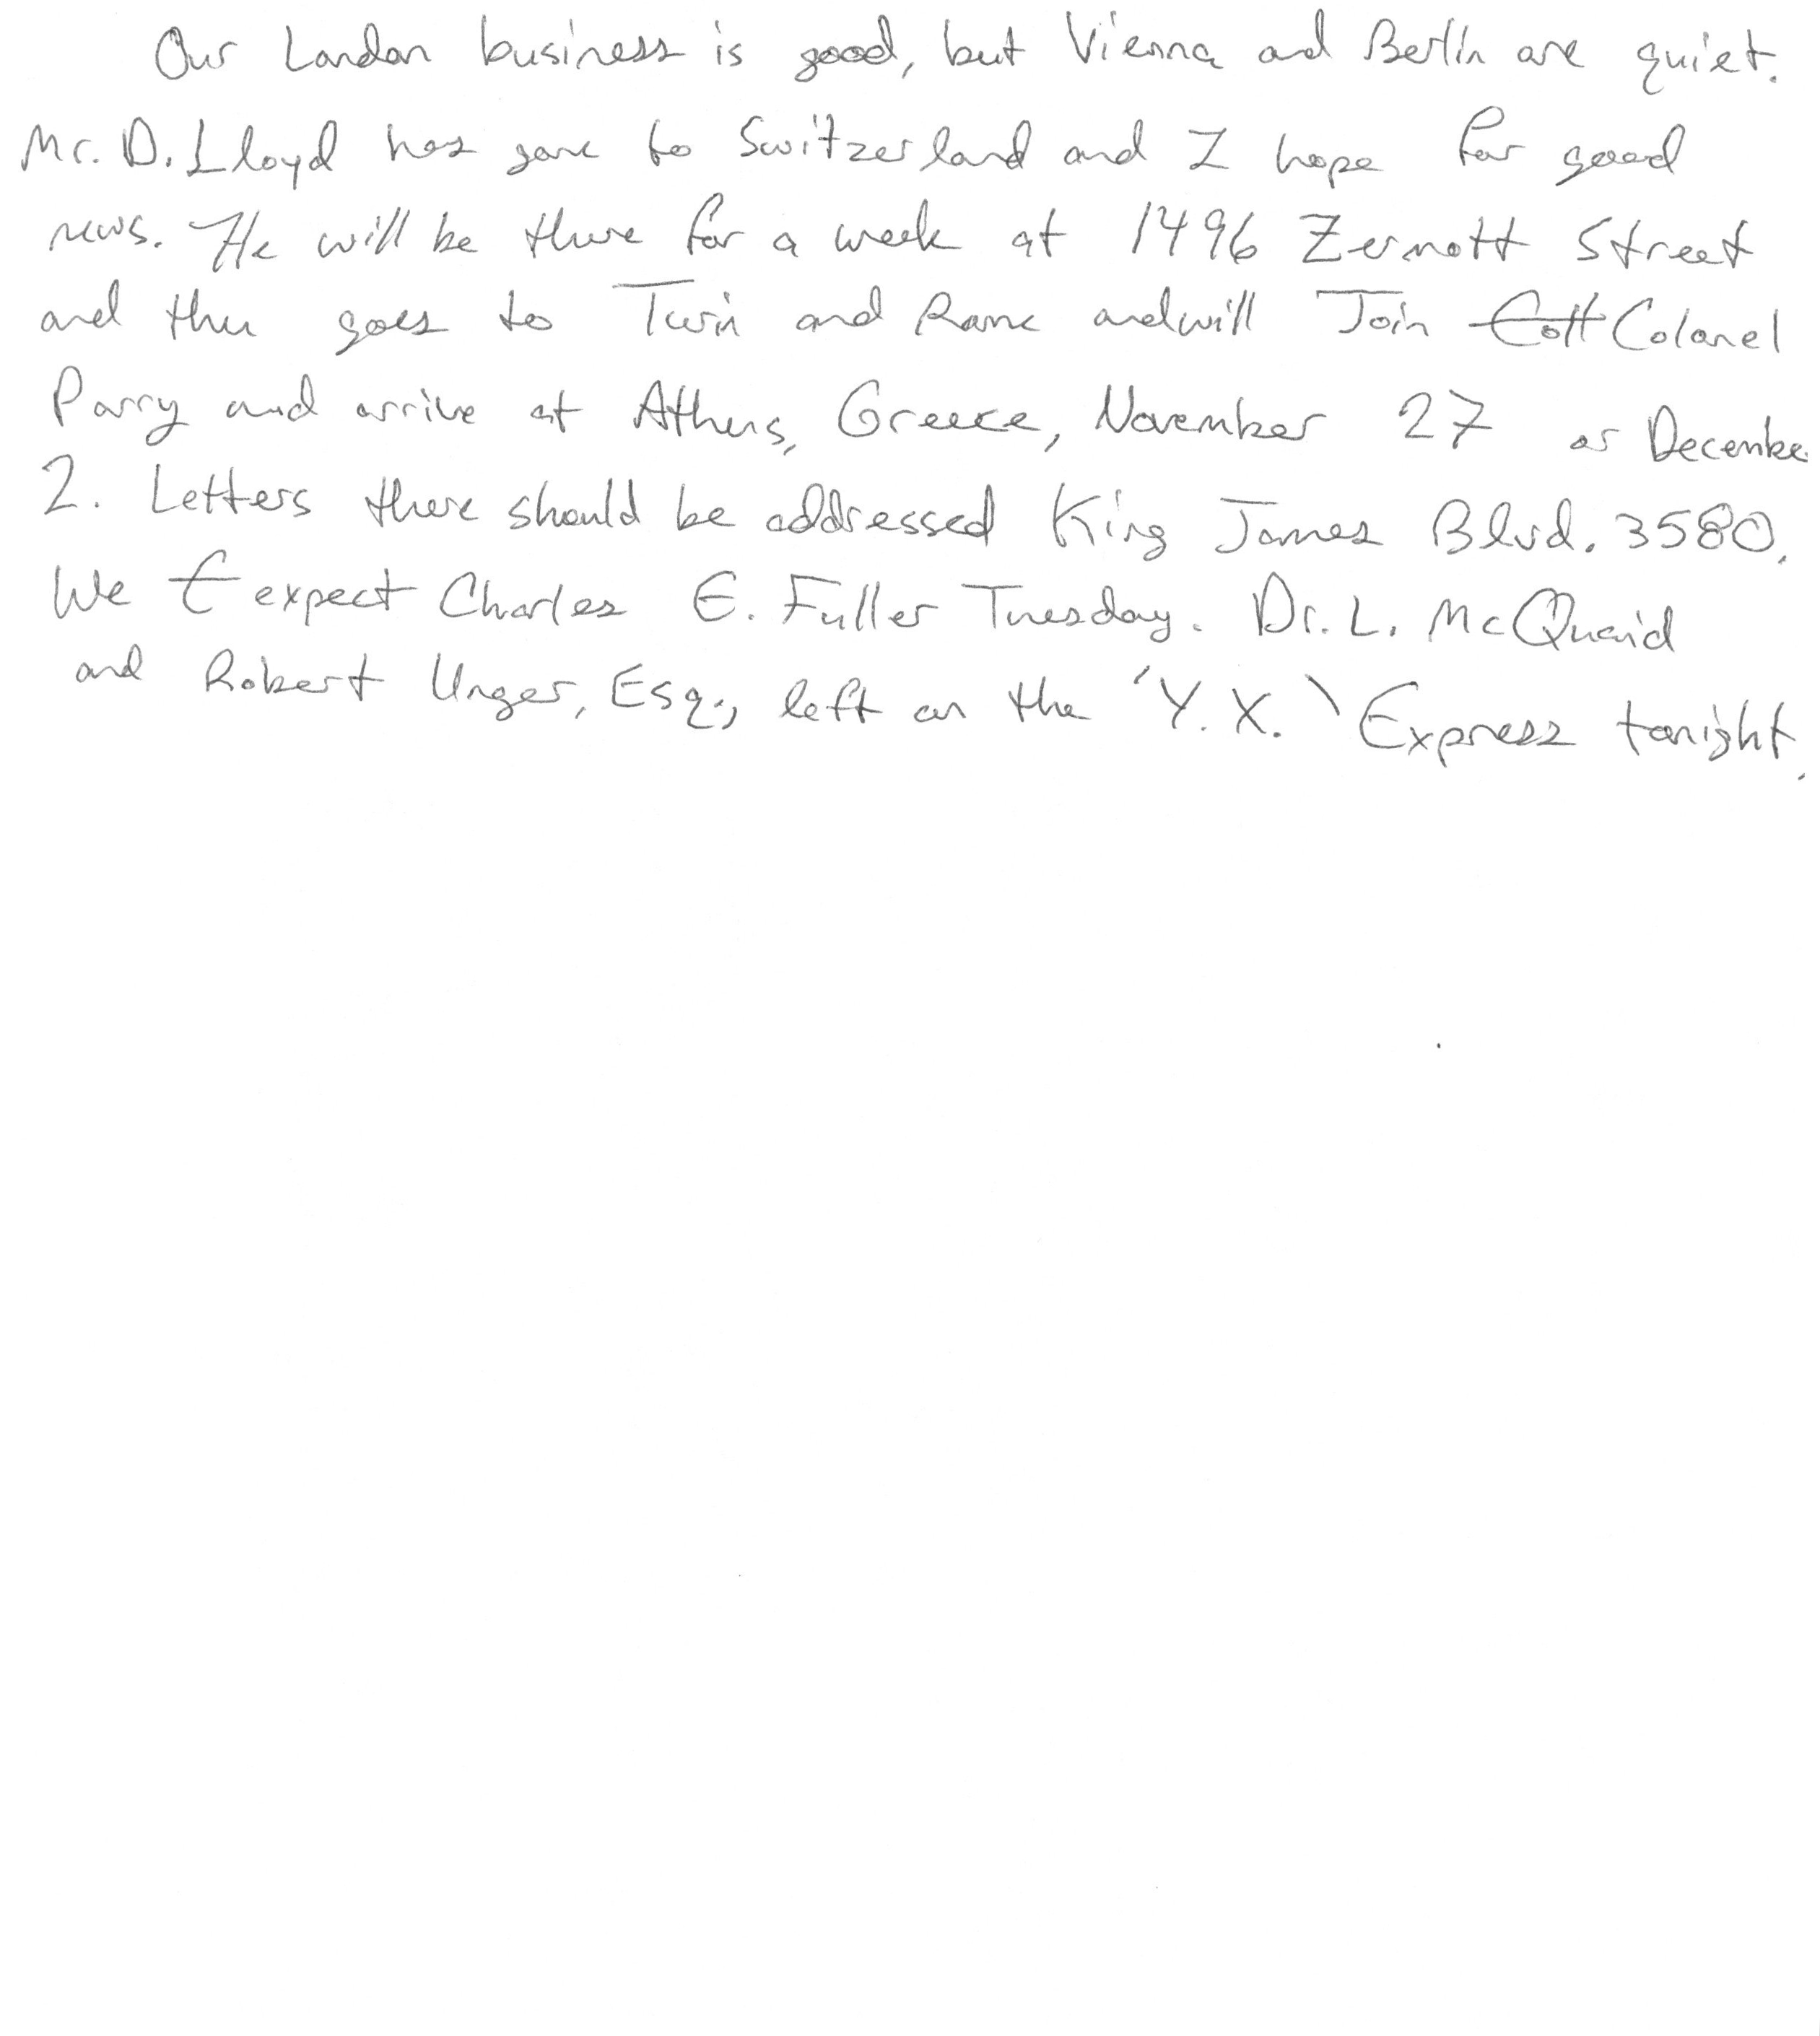 Our London business is good, but Vienna and Berlin are quiet.
Mr. D. Lloyd has gone to Switzerland and I hope for good
news. He will be there for a week at 1496 Zermott Street
and then goes to Turin and Rome and will Join Colonel
Parry and arrive at Athens, Greece, November 27 or December
2. Letters there should be addressed King James Blvd. 3580.
We expect Charles E. Fuller Tuesday. Dr. L. McQuaid
and Robert Unger, Esq., left on the 'Y.X.' Express tonight.